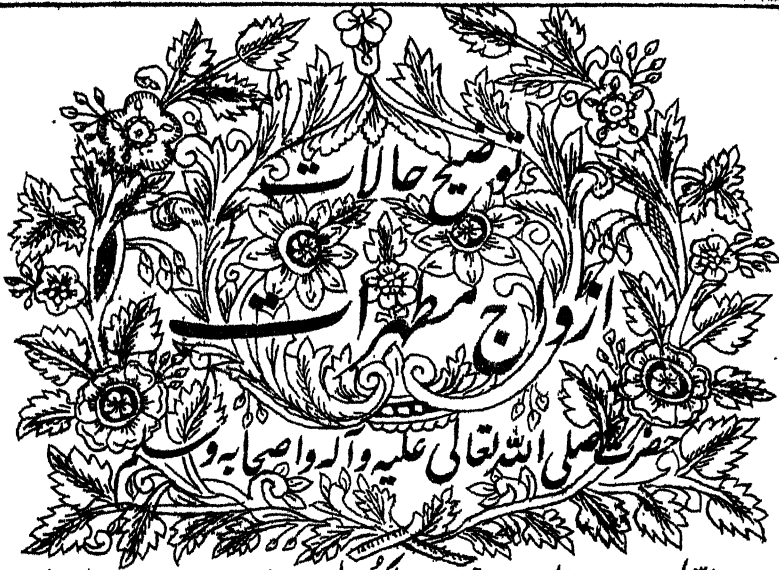 توضیح حالات
ازواج مطہرات
حضرت صلی اللہ تعالیٰ علیہ وآلہ واصحابہ وسلم